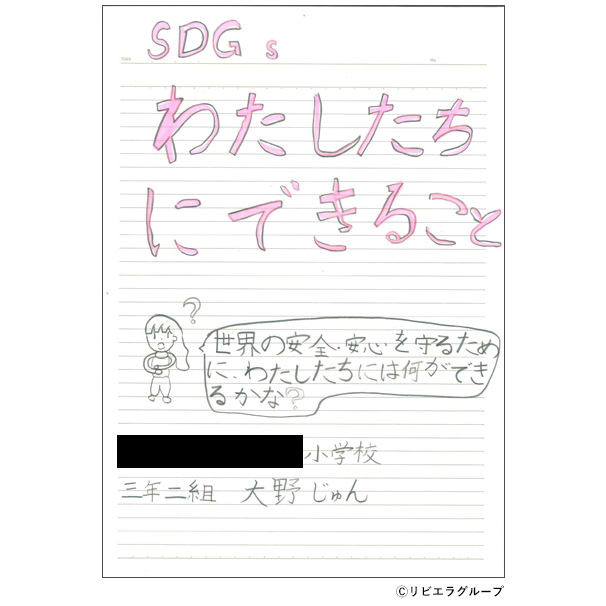 SDGs
わたしたち
にできること
?
世界の安全・安心を守るため
に、わたしたちには何ができ
るかな?
小学校
三年二組 大野じゅん
©リビエラグループ